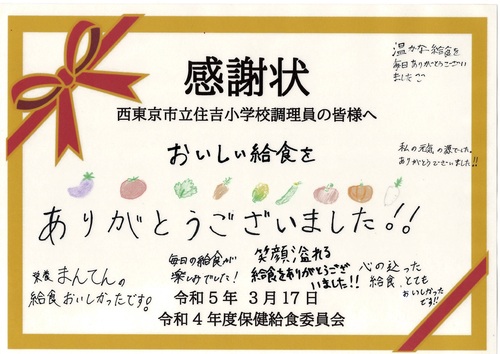 感謝状
西東京市立住吉小学校調理員の皆様へ
温かな給食を
毎日ありがとうござい
ました
おいしい給食を
私の元気の源でした。
ありがとうございました!!
ありがとうございました!!
栄養まんてんの
給食おいしかったです!
毎日の給食が
楽しみでした!
笑顔溢れる
給食をありがとうござ
いました!!
心の込った
給食、とても
おいしかった
です!!
令和5年 3月17日
令和4年度保健給食委員会